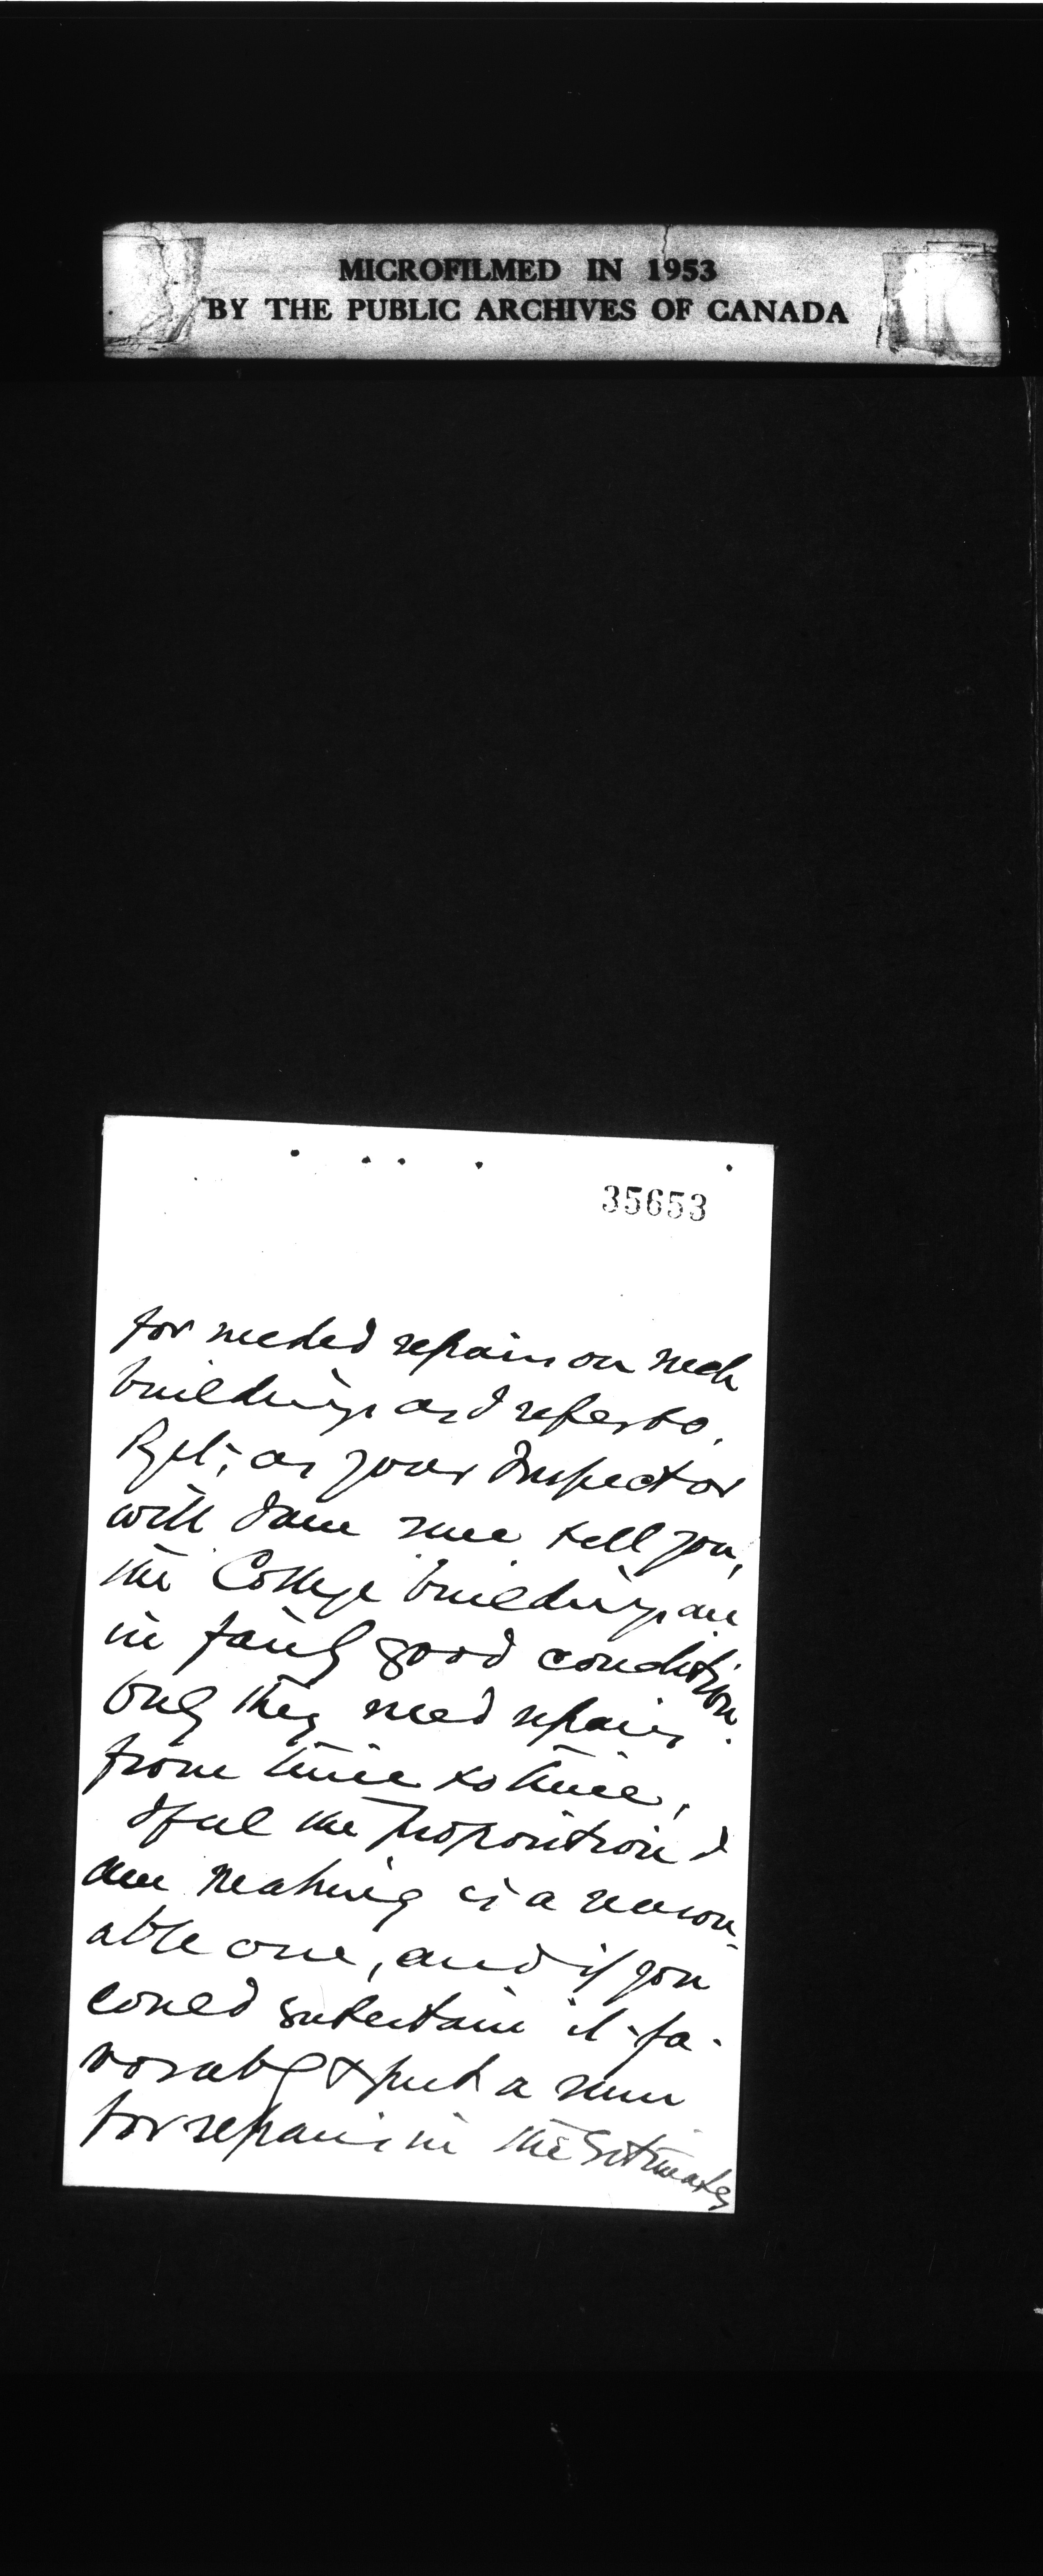 MICROFILMED IN 1953
BY THE PUBLIC ARCHIVES OF CANADA
35653
for needed repairs on such
buildings as I refer to.
as your Inspector
will I am sure tell you,
the College buildings are
in fairly good condition.
Only they need repairs
from time to time.
I feel the proposition I
am making is a reason-
able one, and if you
could entertain it fa-
vorably & put a sum
for repairs in the Estimates